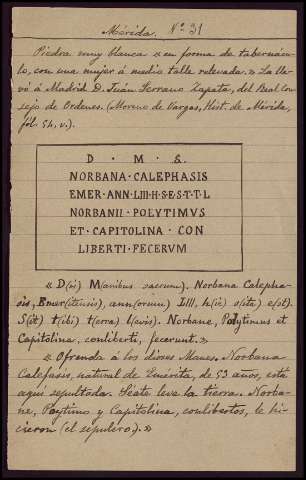 Mérida. Nº 31
Piedra muy blanca «en forma de tabernácu-
lo, con una mujer á medio talle relevada.» La lle-
vó á Madrid D. Juan Serrano Zapata, del Real Con
sejo de Ordenes. (Moreno de Vargas, Hist. de Mérida,
fól. 54, v.).
D · M · S.
NORBANA · CALEPHASIS
EMER · ANN · LIII · H · S · E · S · T · T · L
NORBANII · POLYTIMVS
ET · CAPITOLINA · CON
LIBERTI · FECERVM
« D(is) M(anibus sacrum). Norbana Calepha-
sis, Emer(itensis), ann(orum) LIII, h(ic) s(ita) e(st).
S(it) t(ibi) t(erra) l(evis). Norbane, Polytimus et
Capitolina, conliberti, fecerunt.»
« Ofrenda á los dioses Manes. Norbana
Calefasis, natural de Emérita, de 53 años, está
aquí sepultada. Séate leve la tierra. Norba-
ne, Poytimo y Capitolina, conlibertos, le hi-
cieron (el sepulcro).»